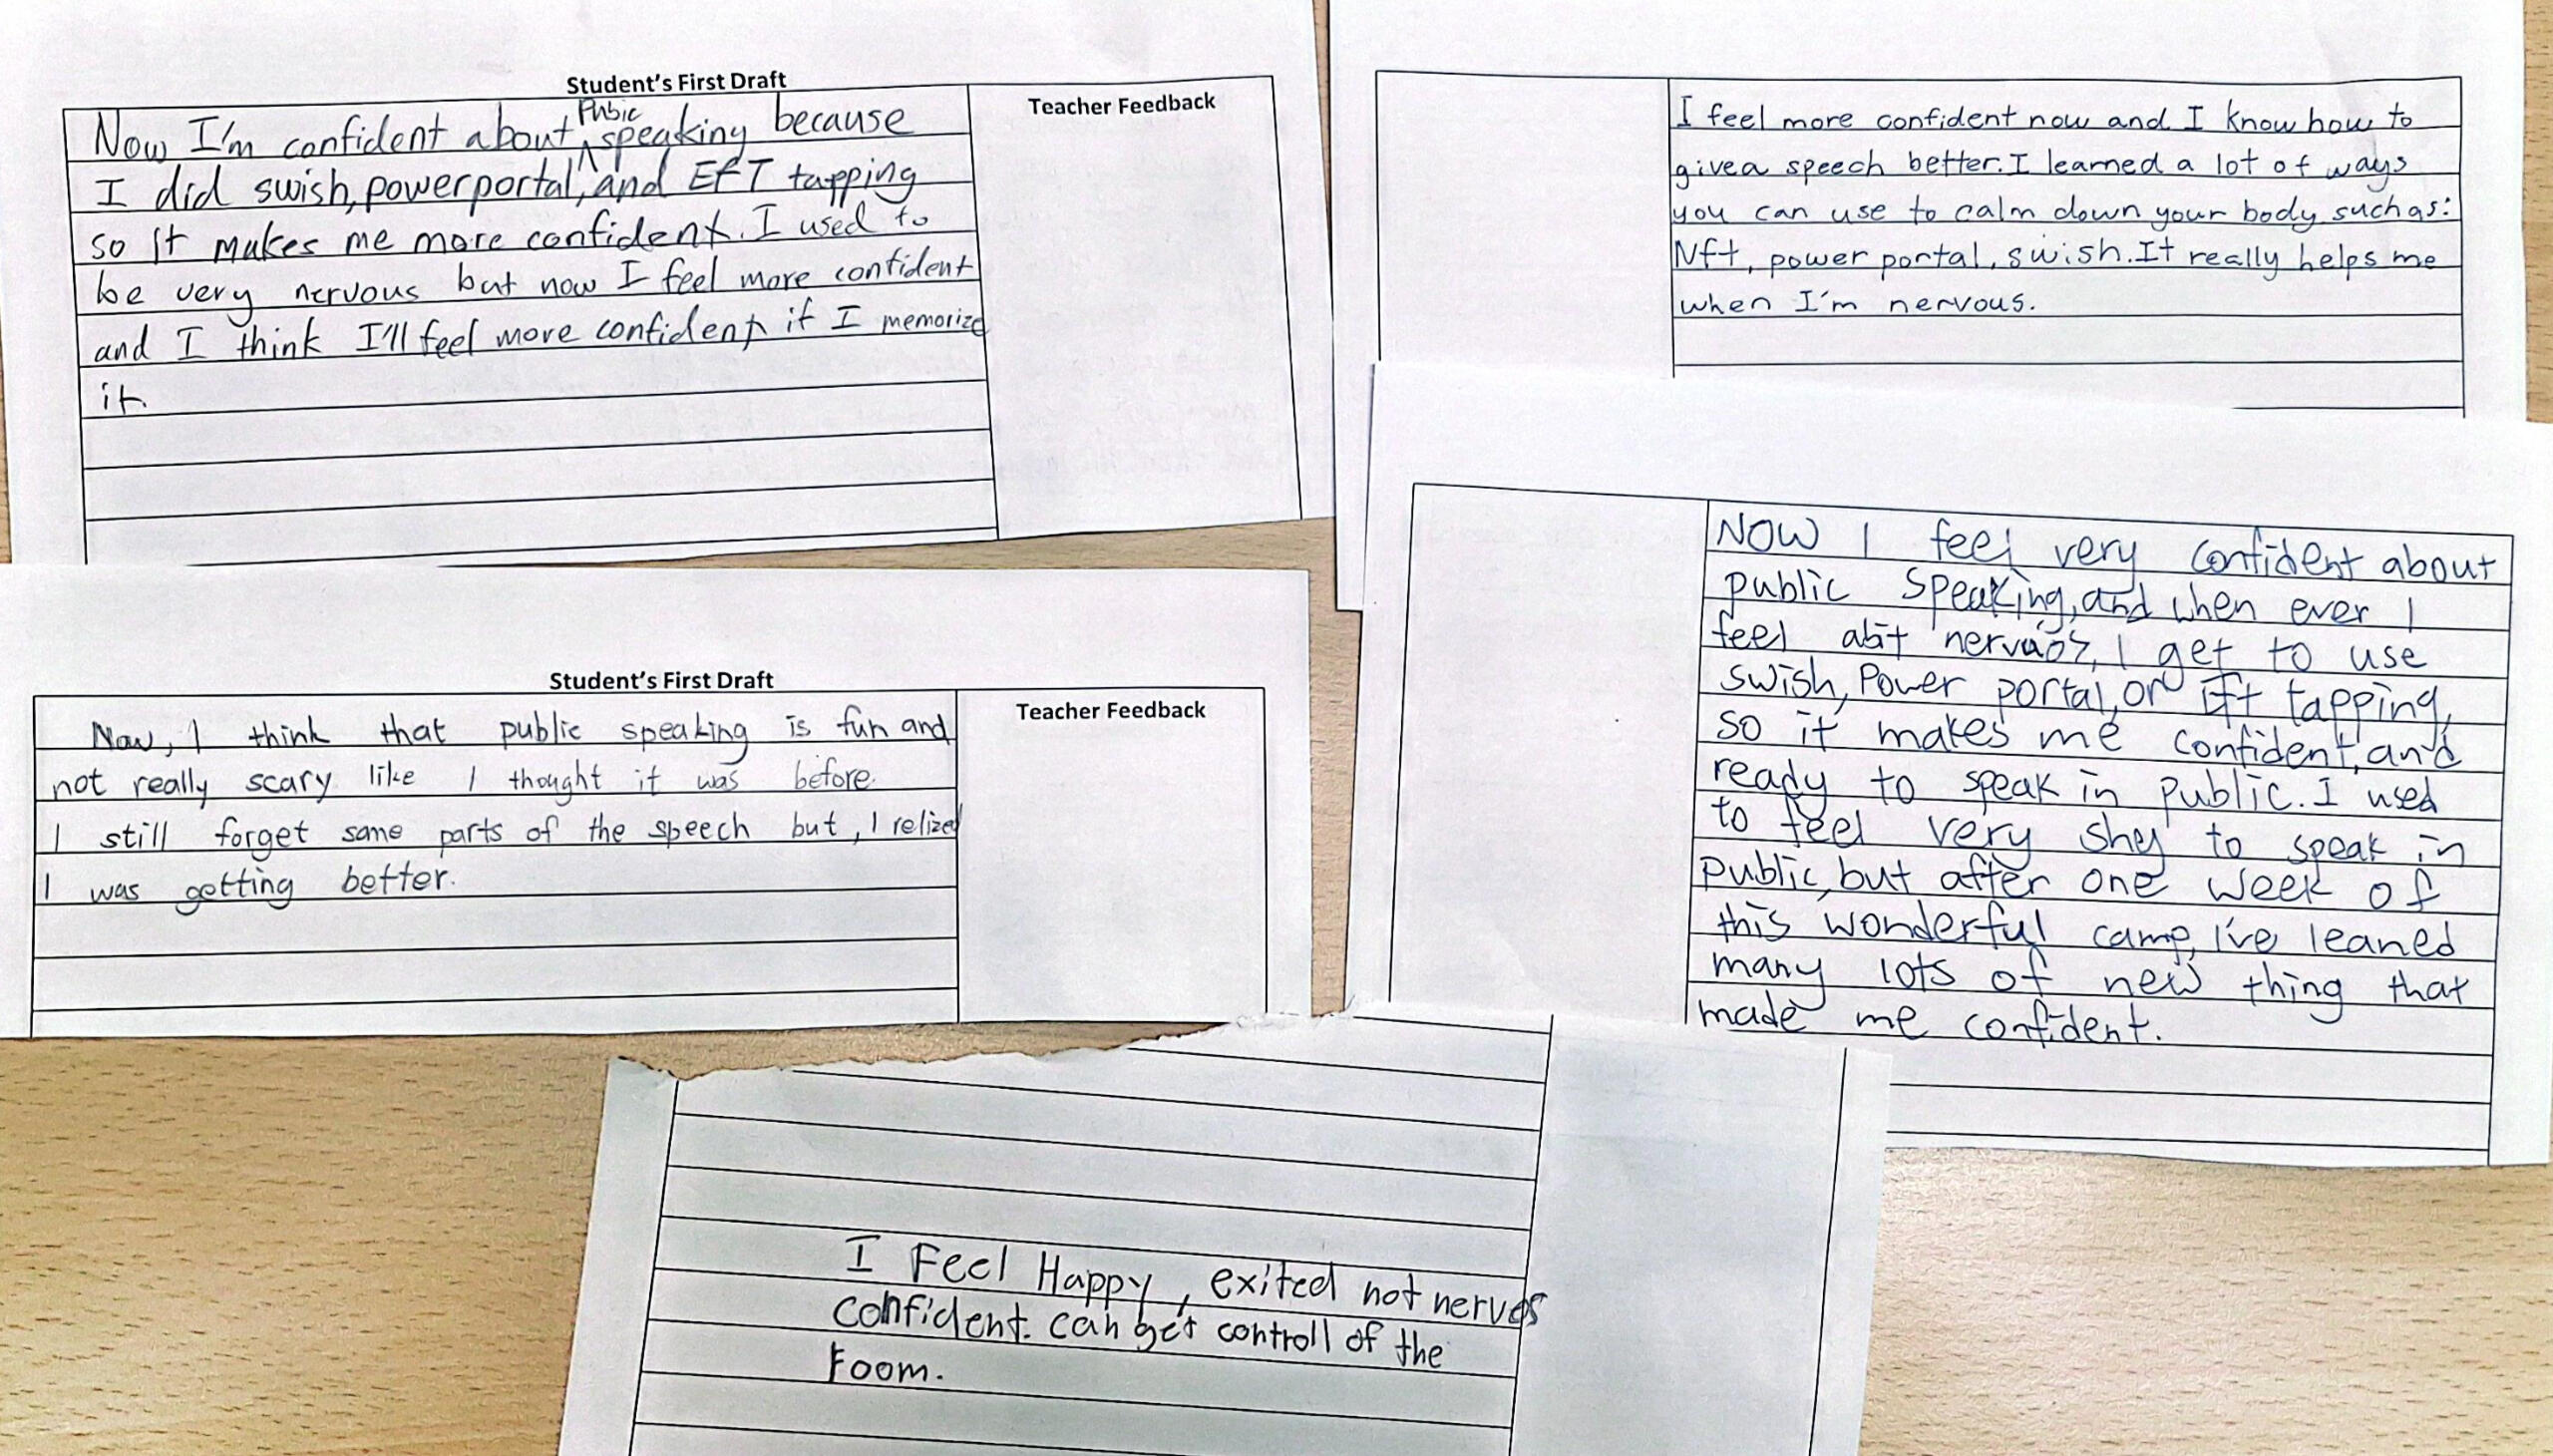 Student's First Draft
Teacher Feedback
Now I'm confident about Pubic speaking because
I did swish, powerportal, and EFT tapping
so it makes me more confident. I used to
be very nervous but now I feel more confident
and I think I'll feel more confident if I memorize
it.
I feel more confident now and I know how to
give a speech better. I learned a lot of ways
you can use to calm down your body such as:
Nft, power portal, swish. It really helps me
when I'm nervous.
Student's First Draft
Teacher Feedback
Now, I think that public speaking is fun and
not really scary like I thought it was before.
I still forget some parts of the speech but, I relized
I was getting better.
NOW I feel very confident about
public speaking, and when ever I
feel abit I get to use
swish, Power portal, or Eft tapping,
so it makes me confident, and
ready to speak in public. I used
to feel very shy to speak in
public, but after one week of
this wonderful camp, I've leaned
many lots of new thing that
made me confident.
I Feel Happy, exited not nerves
confident. can get controll of the
room.